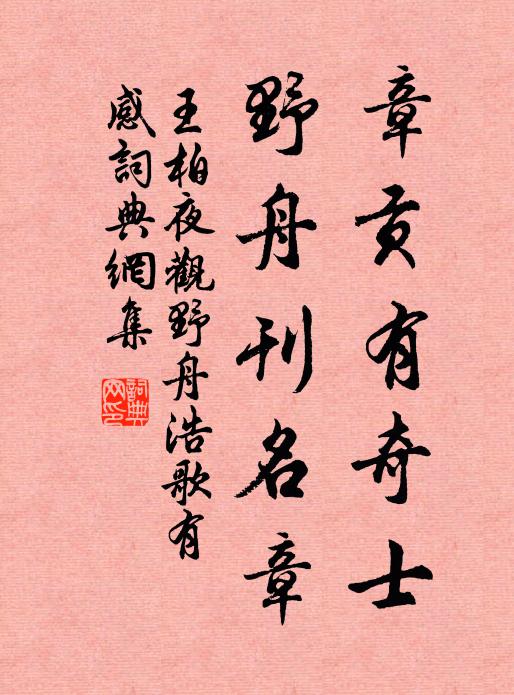 章贡有奇士
野舟刊名章
王柏夜觀野舟浩歌有
感詞典網集
詞典
网印